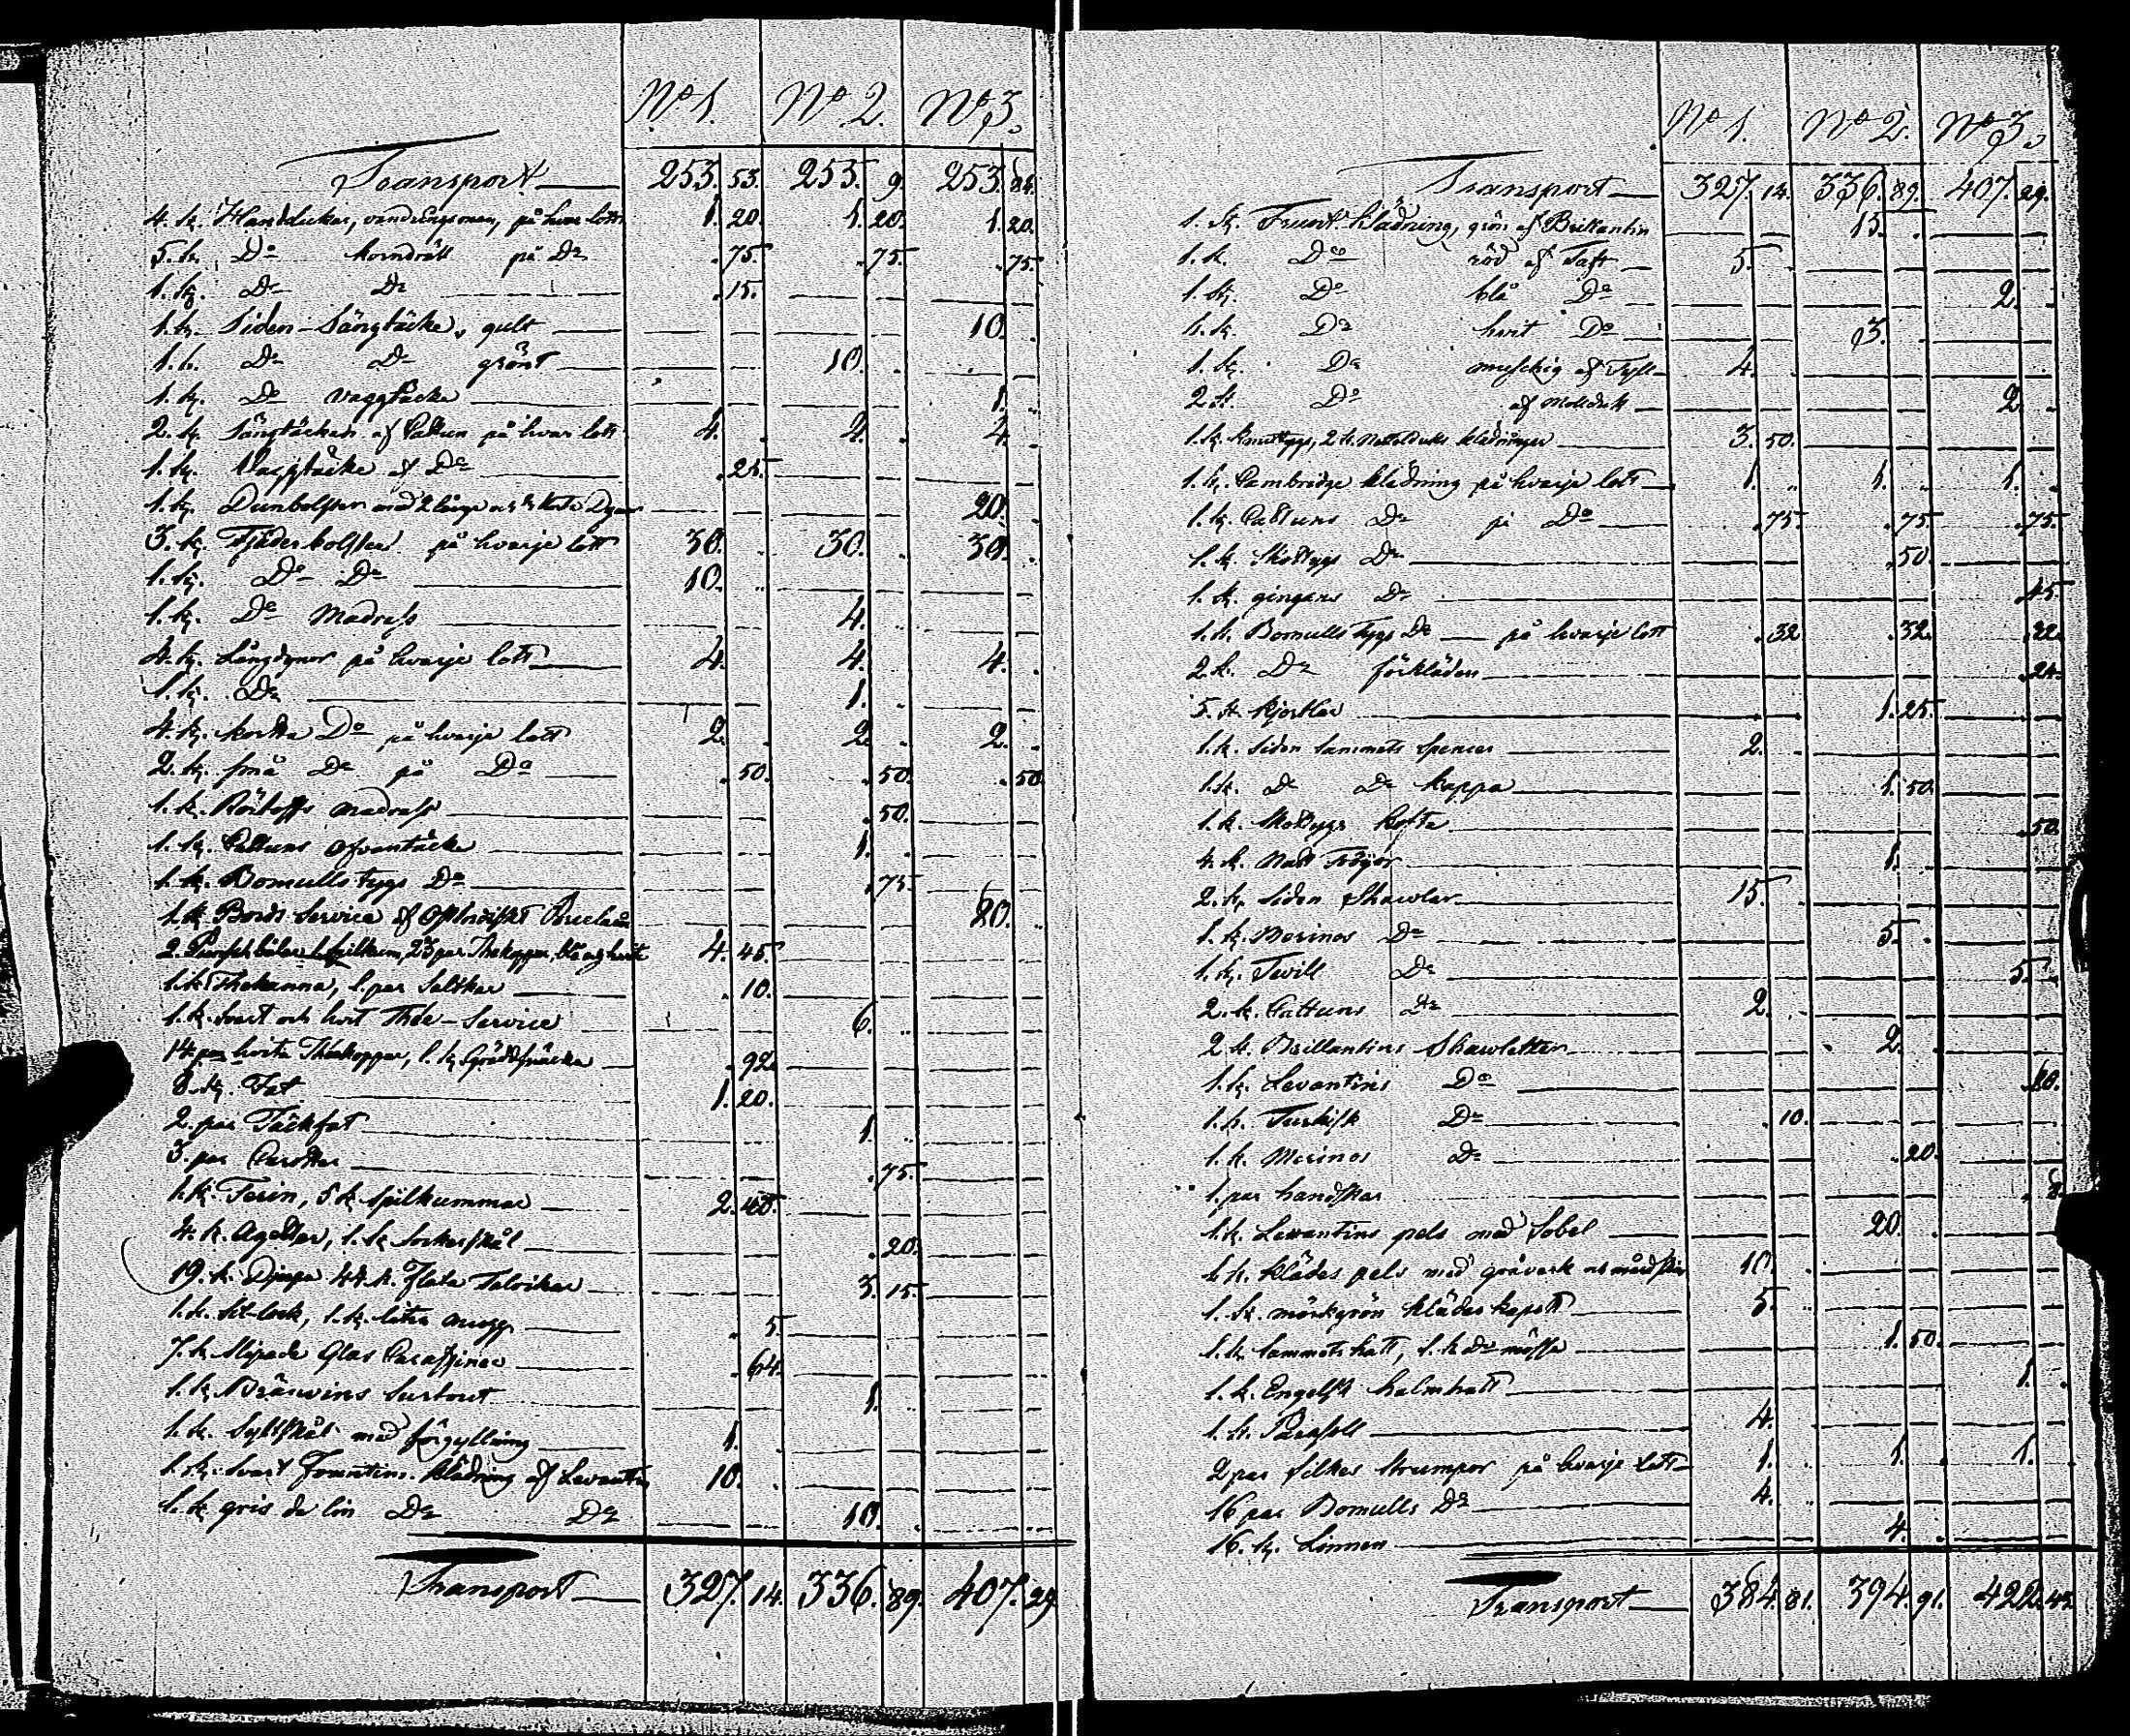 No 1. No 2. No 3.
Transport 253. 53. 253. 9. 253. 84.
4. st. Handdukar, på hvar lott 1. 20. 1. 20. 1. 20.
5. st. Do korndräll på Do . 75. . 75. . 75.
1. st. Do Do . 15.
1. st. Siden-Sängtäcke, gult 10. .
1. st. Do Do grönt 10. .
1. st. Do Vaggtäcke 1. ..
2. st. Sängtäcken af Cattun på hvar lott 4. . 4. . 4. .
1. st. Vaggtäcke af Do . 25.
1. st. Dunbolster med 2 långa och korta Dynor 20. .
3. st. Fjäderbolster på hvarje lott 30. .. 30. . 30. .
1. st. Do Do 10. ..
1. st. Do Madrass 4. .
4. st. Långdynor på hvarje lott 4. 4. 4. .
1. st. Do 1. .
4. st. korta Do på hvarje lott 2. . 2. . 2. .
2. st. små Do på Do . 50. . 50. . 50.
1. st. madrass . 50.
1. st. Cattuns Ofvantäcke 1. .
1. st. Bomullstygs Do . 75.
1. st. Bords Service af Ostindiskt Porcelain 80. ..
2. Punschbålar, 1. spilkum, 23 par Thekoppar, blå och hvita 4. 45.
1. st. Thekanna, 1. par Saltkar . 10.
1. st. Svart och hvit Thée-Service 6. ..
14. par hvita Théekoppar, 1. st. Gräddsnäcka . 92.
8. st. Fat 1. 20.
2. par Täckfat 1. ..
3. par Carotter . 75.
1. st. Terin, 5 st. spilkummar 2. 40.
4. st. Agetter, 1. st. Sockerskål . 20.
19. st. Djupa 44. st. flata Talrikar 3. 15.
1. st. lock, 1. st. liten mugg . 5.
7. st. Slipade Glas Caraffiner . 64.
1. st. Bränvins Surtout 1. .
1. st. Syltskål med förgyllning 1. .
1. st. Svart klädning af Levantin 10. .
1. st. gris de lin Do Do 10. .
Transport 327. 14. 336. 89. 407. 29.
No 1. No 2. No 3.
Transport 327. 14. 336. 89. 407. 29.
1. st. Klädning, grön af 15. .
1. st. Do röd af Taft 5. .
1. st. Do blå Do 2. .
1. st. Do hvit Do 3. .
1. st. Do af Tyll 4. .
2 st. Do af Molduk 2. .
1. st. 2 st. klädningar 3. 50.
1. st. Cambridge klädning på hvarje lott 1. .. 1. .. 1. .
1. st. Cattuns Do på Do . 75. . 75. . 75.
1. st. Do . 50.
1. st. gingans Do . 45.
1. st. Bomullstygs Do på hvarje lott . 32 . 32. . 32.
2. st. Do förkläden . 24.
5. st. Kjortlar 1. 25.
1. st. Siden Sammets Spencer 2. .
1. st. Do Do kappa 1. 50.
1. st. kofta . 50.
4. st. Natt Tröjor 1. .
2. st. Siden Shawlar 15. .
1. st. Merinos Do 5. .
1. st. Twill Do 5. .
2. st. Cattuns Do 2. .
2 st. Brillantins Shawletter 2. .
1. st. Levantins Do
1. st. Turkisk Do . 10.
1. st. Merinos Do . 20.
1. par handskar
1. st. Levantins pels med Sobel 20. .
1. st. klädes pels med gråverk och mårdskin 10. .
1. st. mörkgrön klädes kapott 5. ..
1. st. Sammets hatt, 1. st. Do mössa 1. 50.
1. st. Engelsk halmhatt 1. .
1. st. Parasoll 4. .
2 par silkes strumpor på hvarje lott 1. . 1. . 1. .
16 par Bomulls Do 4. .
16. st. Linnen 4. .
Transport 384. 81. 394. 91. 422.